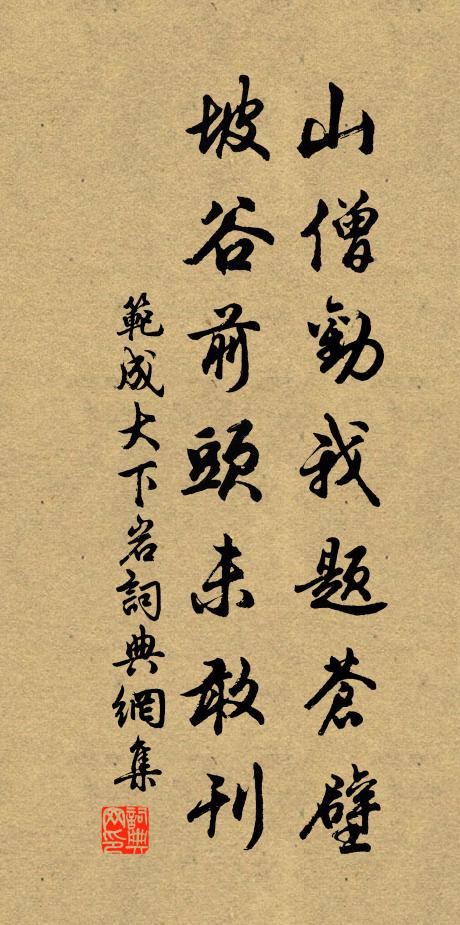 山僧勸我題蒼壁
坡谷前頭未敢刊
範成大下岩詞典網集
詞典网印